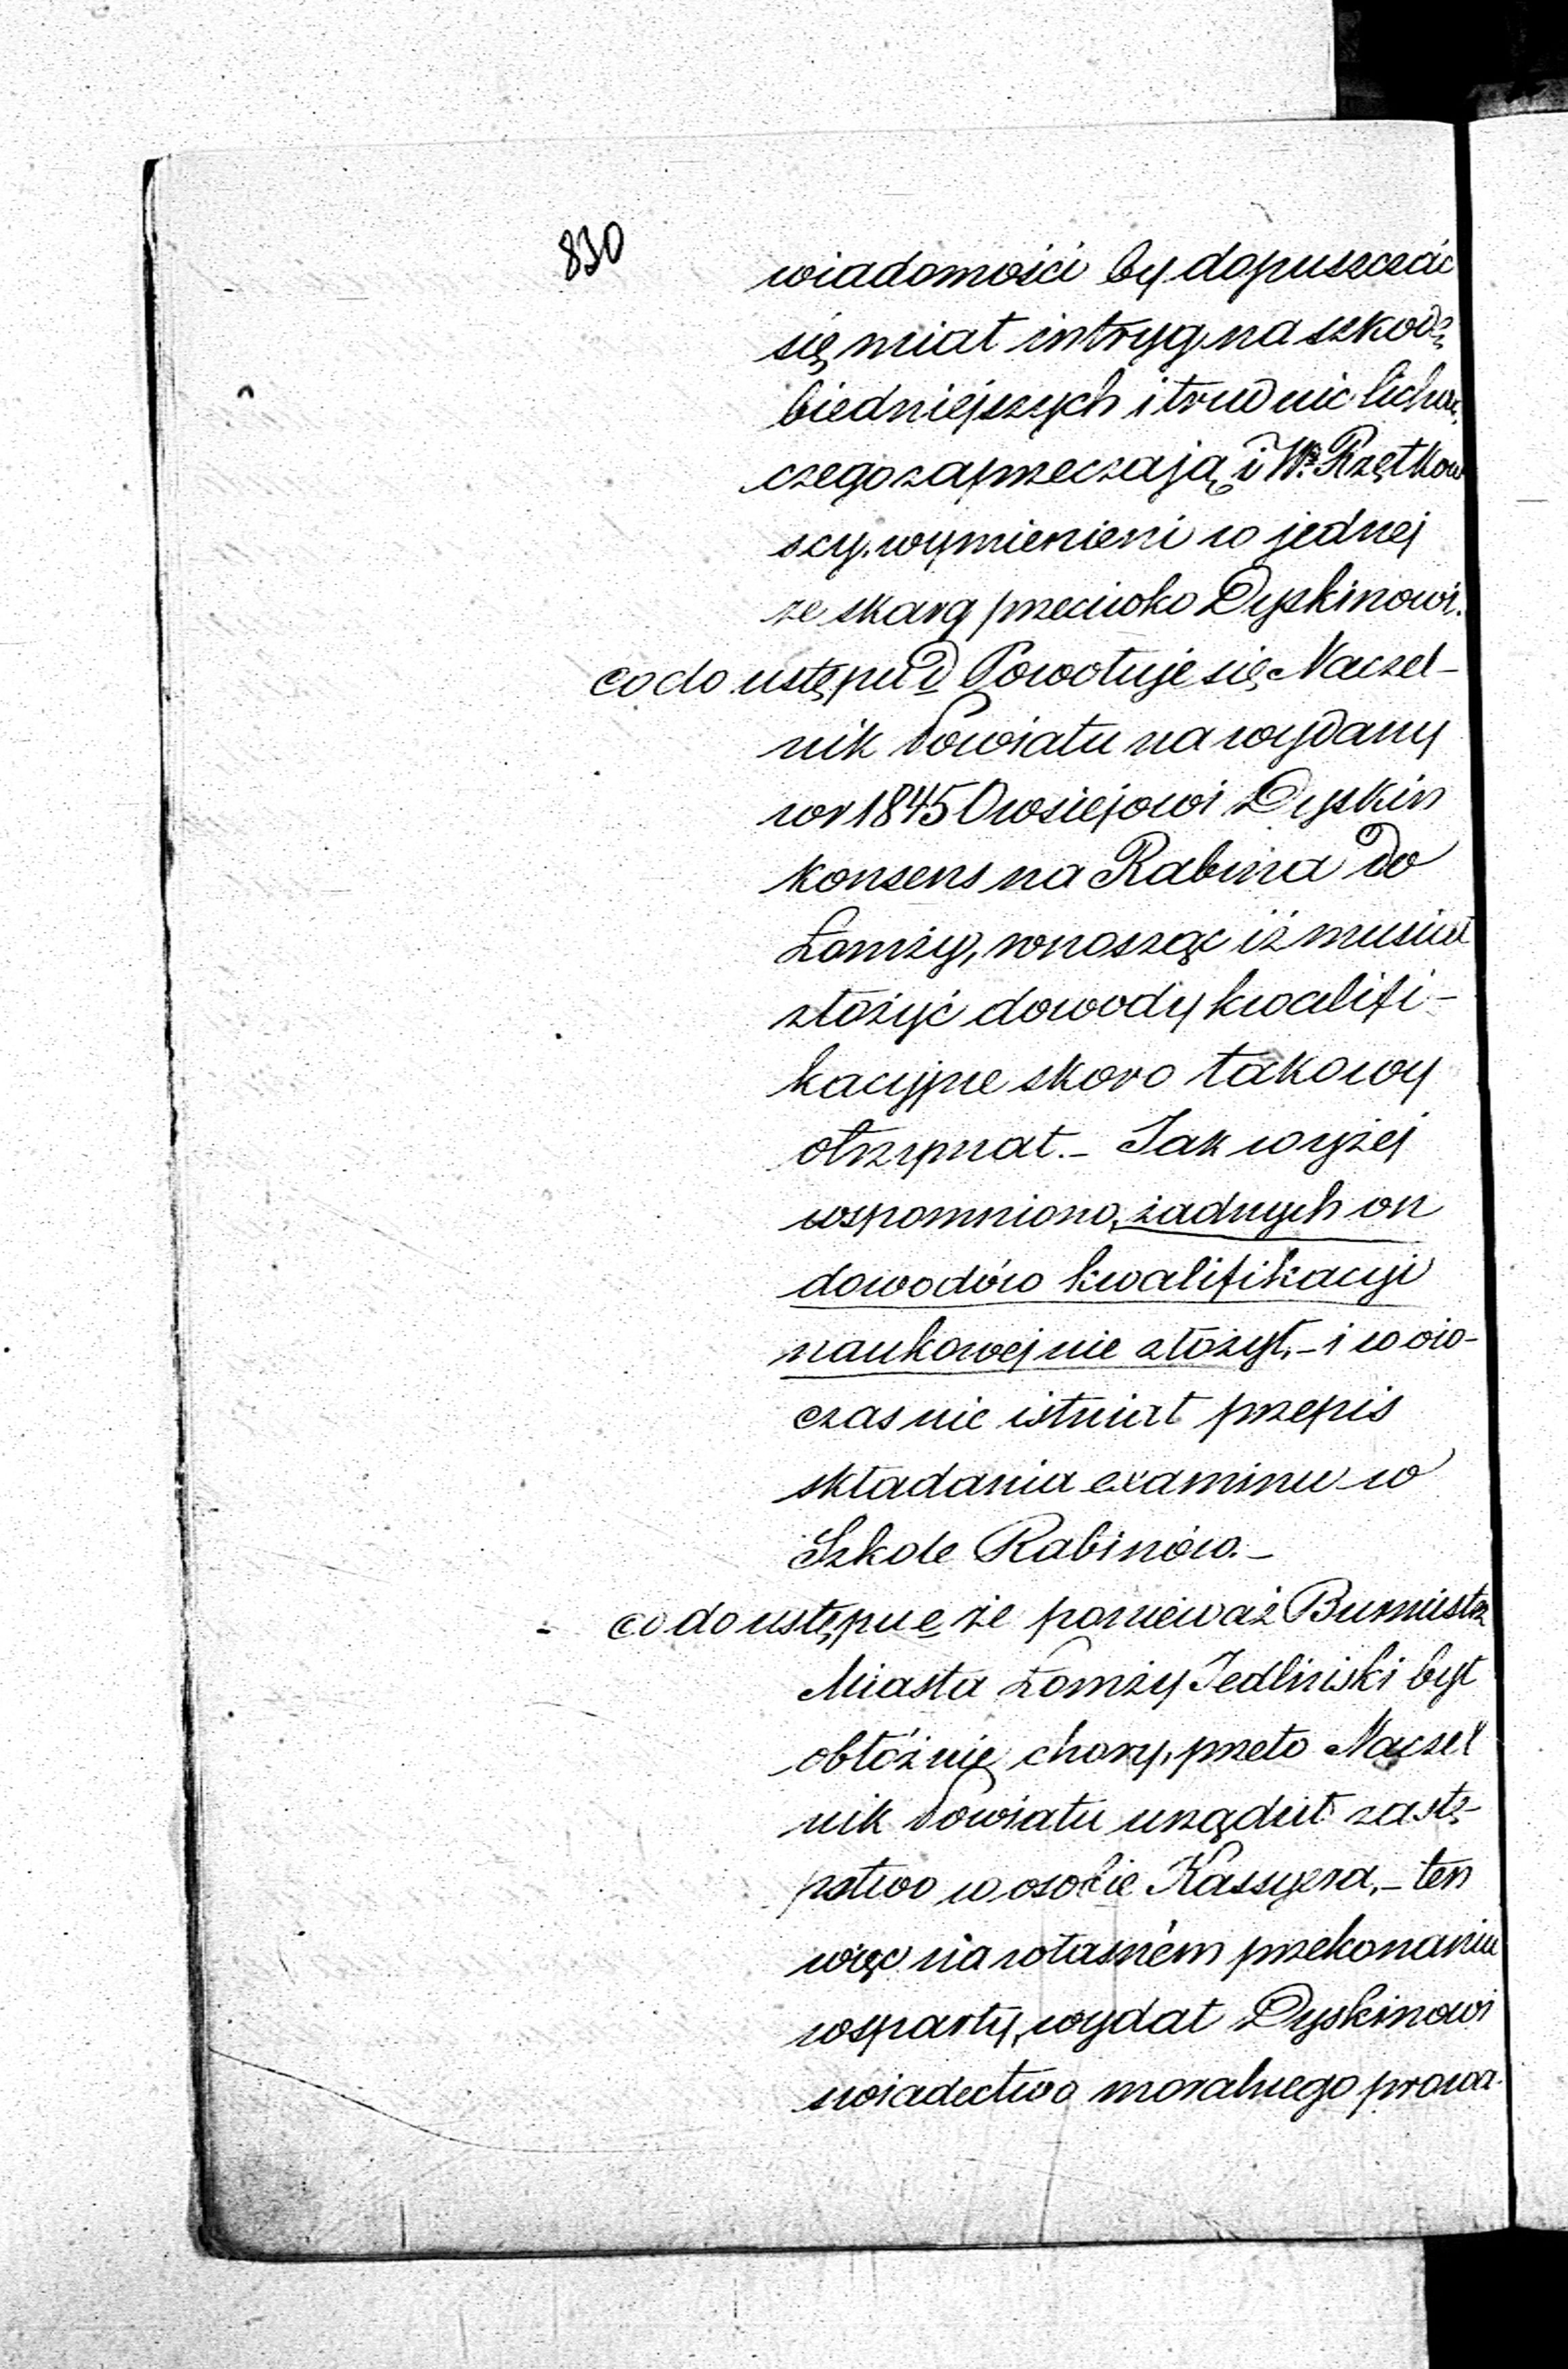 830
wiadomości by dopuszczać
się miał intryg na szkodę
biedniejszych i trudnić lichwą,
czego zaprzeczają i W. Rzętkow
scy, wymienieni w jednej
ze skarg przeciwko Dyskinowi.
co do ustępu D Powołuje się Naczel-
nik Powiatu na wydany
w r 1845 Owsiejowi Dyskin
konsens na Rabina do
Łomży, wnosząc iż musiał
złożyć dowody kwalifi-
kacyjne skoro takowy
otrzymał. – Jak wyżej
wspomniono, żadnych on
dowodów kwalifikacyi
naukowej nie złożył, – i wów-
czas nie istniał przepis
składania examinu w
Szkole Rabinów. –
- co do ustępu e że ponieważ Burmistrz
Miasta Łomży Jedliński był
obłóżnie chory, przeto Naczel
nik Powiatu urządził zastę-
pstwo w osobie Kassyera, – ten
więc na własném przekonaniu
wsparty, wydał Dyskinowi
swiadectwo moralnego prowa-